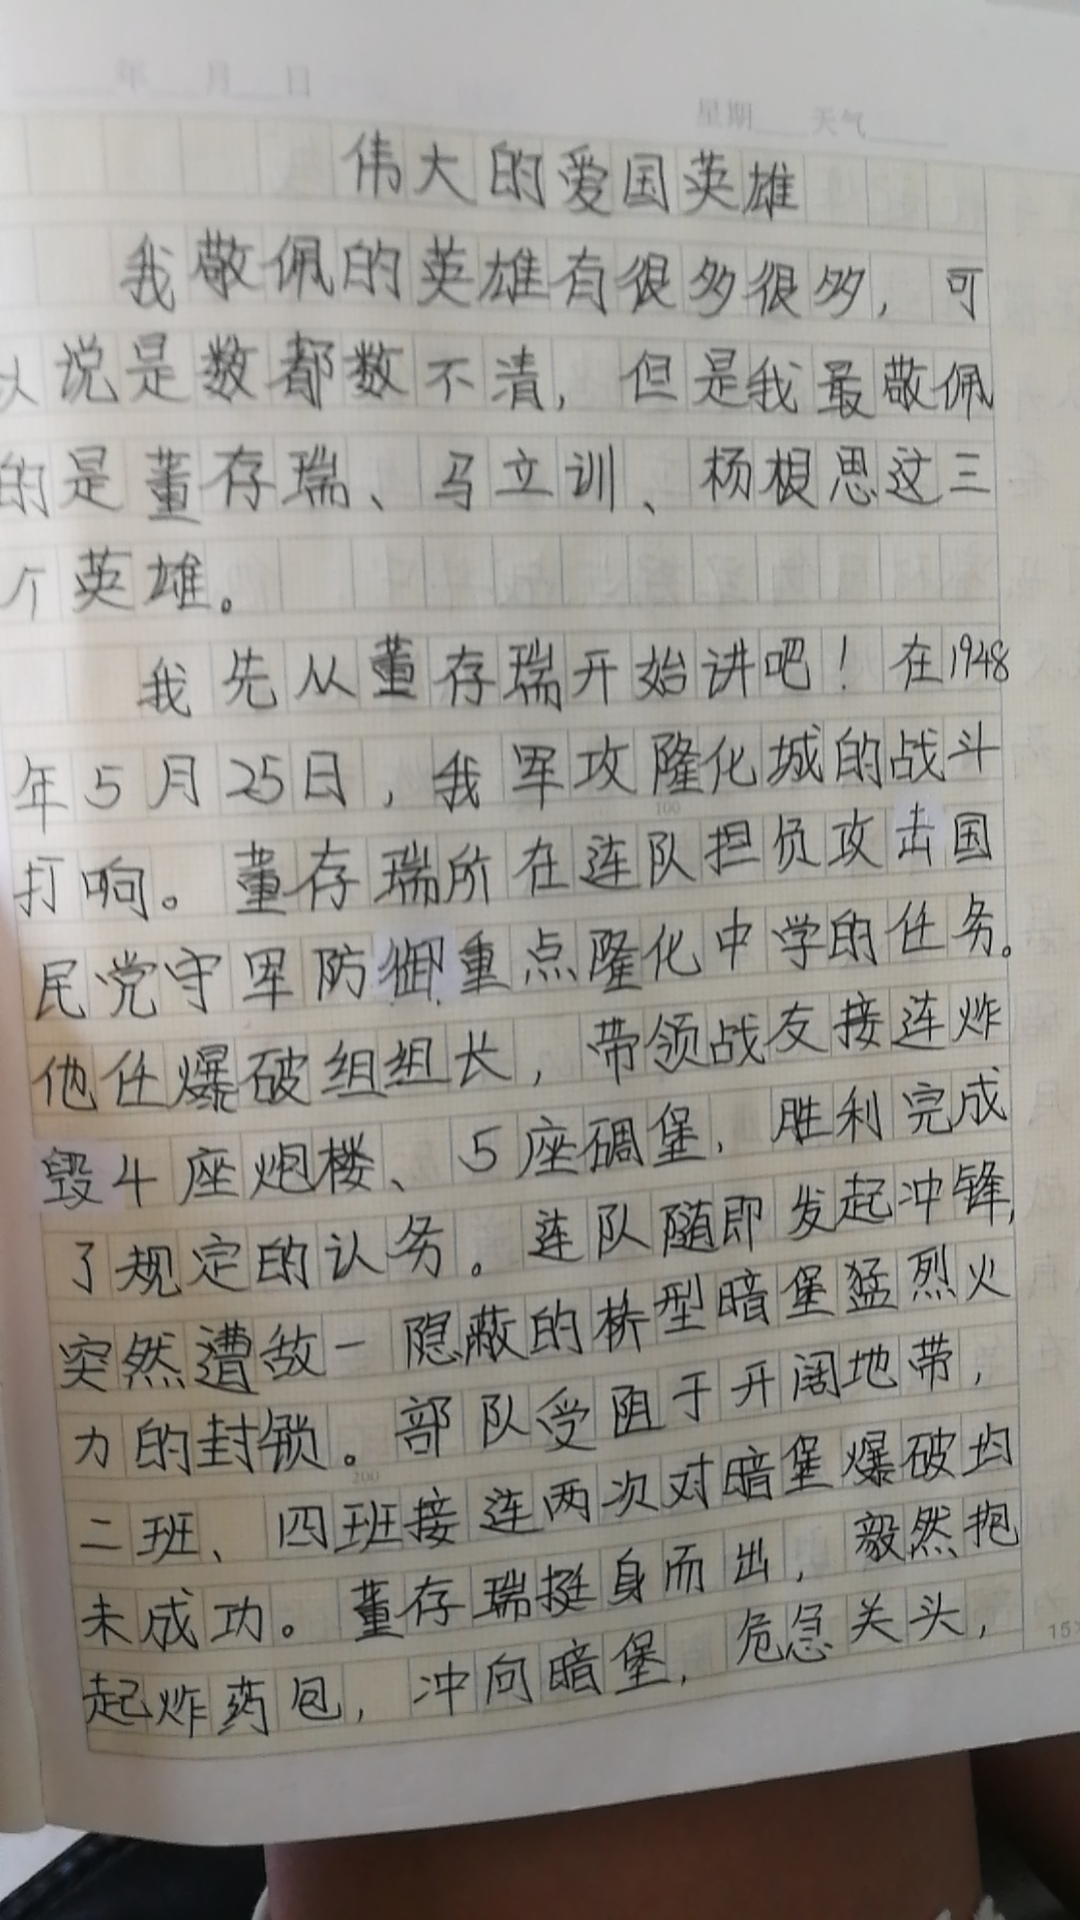 年 月 日
星期 天气
伟大的爱国英雄
我敬佩的英雄有很多很多，可
以说是数都数不清，但是我最敬佩
的是董存瑞、马立训、杨根思这三
个英雄。
我先从董存瑞开始讲吧！在1948
年5月25日，我军攻隆化城的战斗
100
打响。董存瑞所在连队担负攻击国
民党守军防御重点隆化中学的任务。
他任爆破组组长，带领战友接连炸
毁4座炮楼、5座碉堡，胜利完成
了规定的认务。连队随即发起冲锋，
突然遭敌一隐蔽的桥型暗堡猛烈火
力的封锁。部队受阻于开阔地带，
200
二班、四班接连两次对暗堡爆破均
未成功。董存瑞挺身而出，毅然抱
起炸药包，冲向暗堡，危急关头，